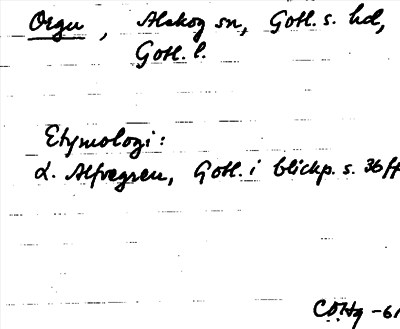 Orgu, Alskog sn, Gotl. s. hd,
Gotl. l.
Etymologi:
L. Alfvegren, Gotl. i blickp. s. 36 ff
CÖHg -61